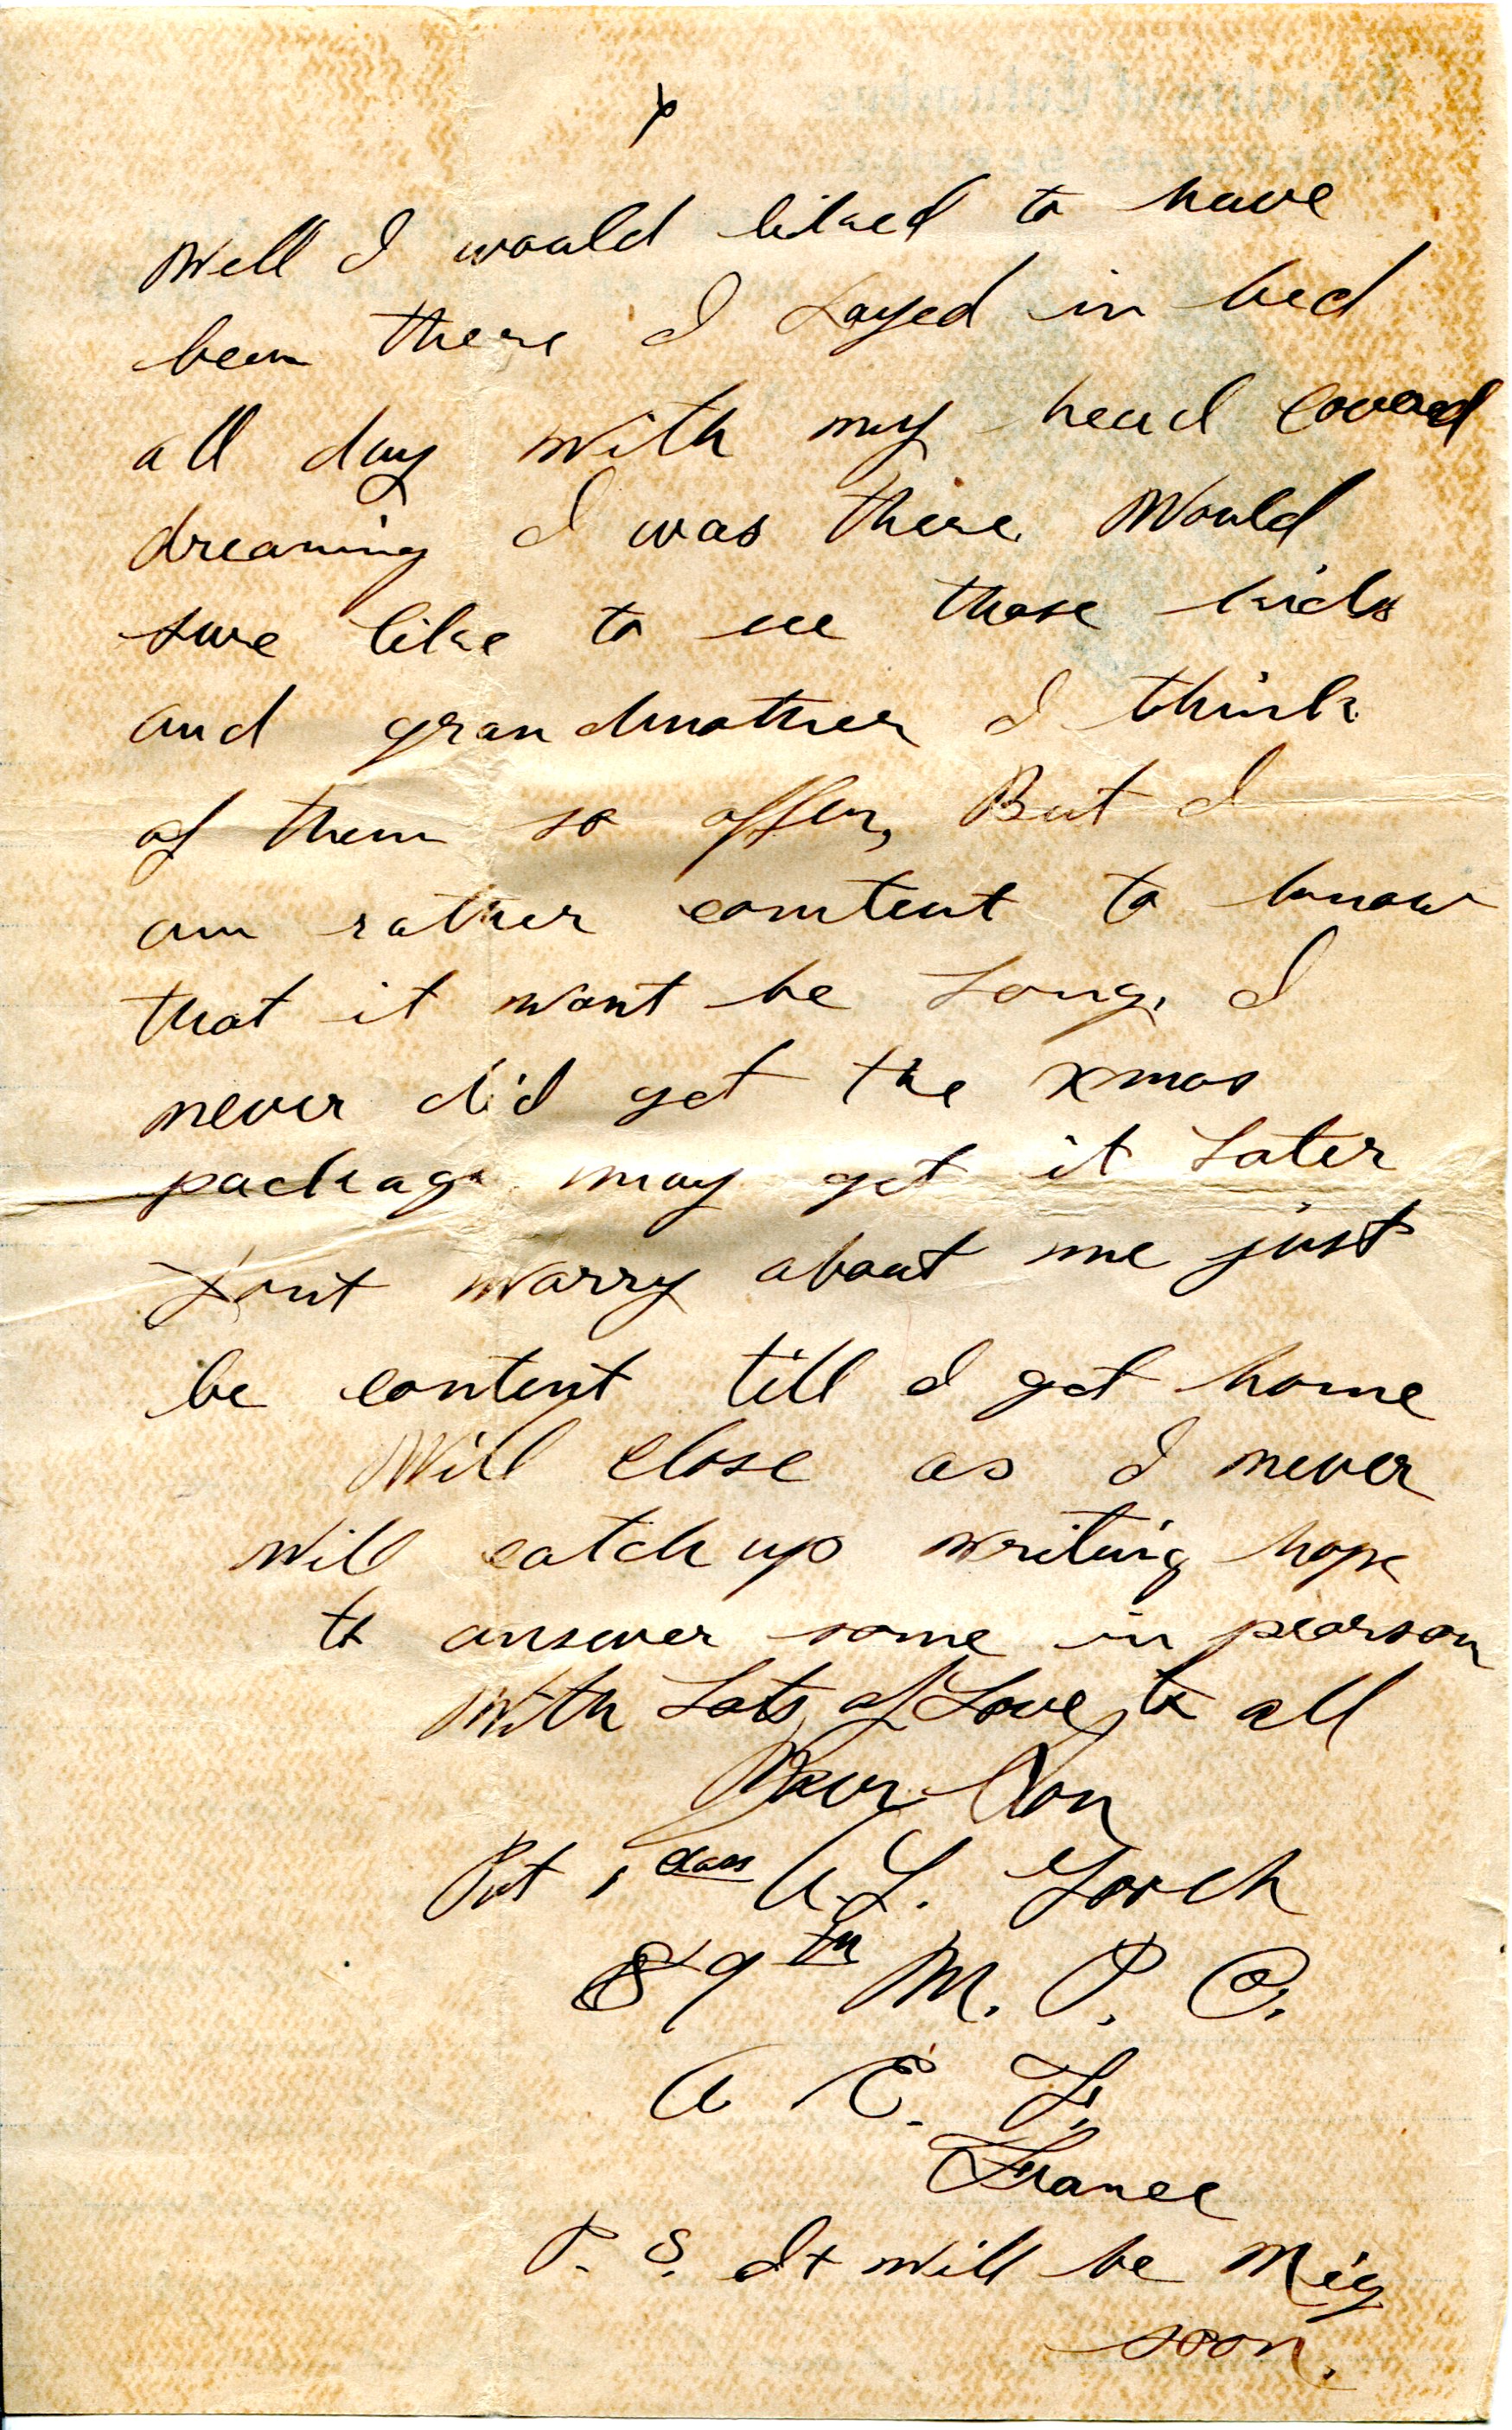 Well I would liked to have
been there I Layed in bed
all day with my head covered
dreaming I was there Would
sure like to see those kids
and grandmother I think
of them so offen, But I
am rather comtent to know
that it wont be Long, I
never did get the xmas
package may get it Later
Dont worry about me just
be content till I get home
Will close as I never
will catch up writing hope
to answer some in pearson
With Lots of Love to all
Your Son
Pvt 1 class A.L.
89th M. P. C.
A E. F.
France
P. S. It will be
soon.